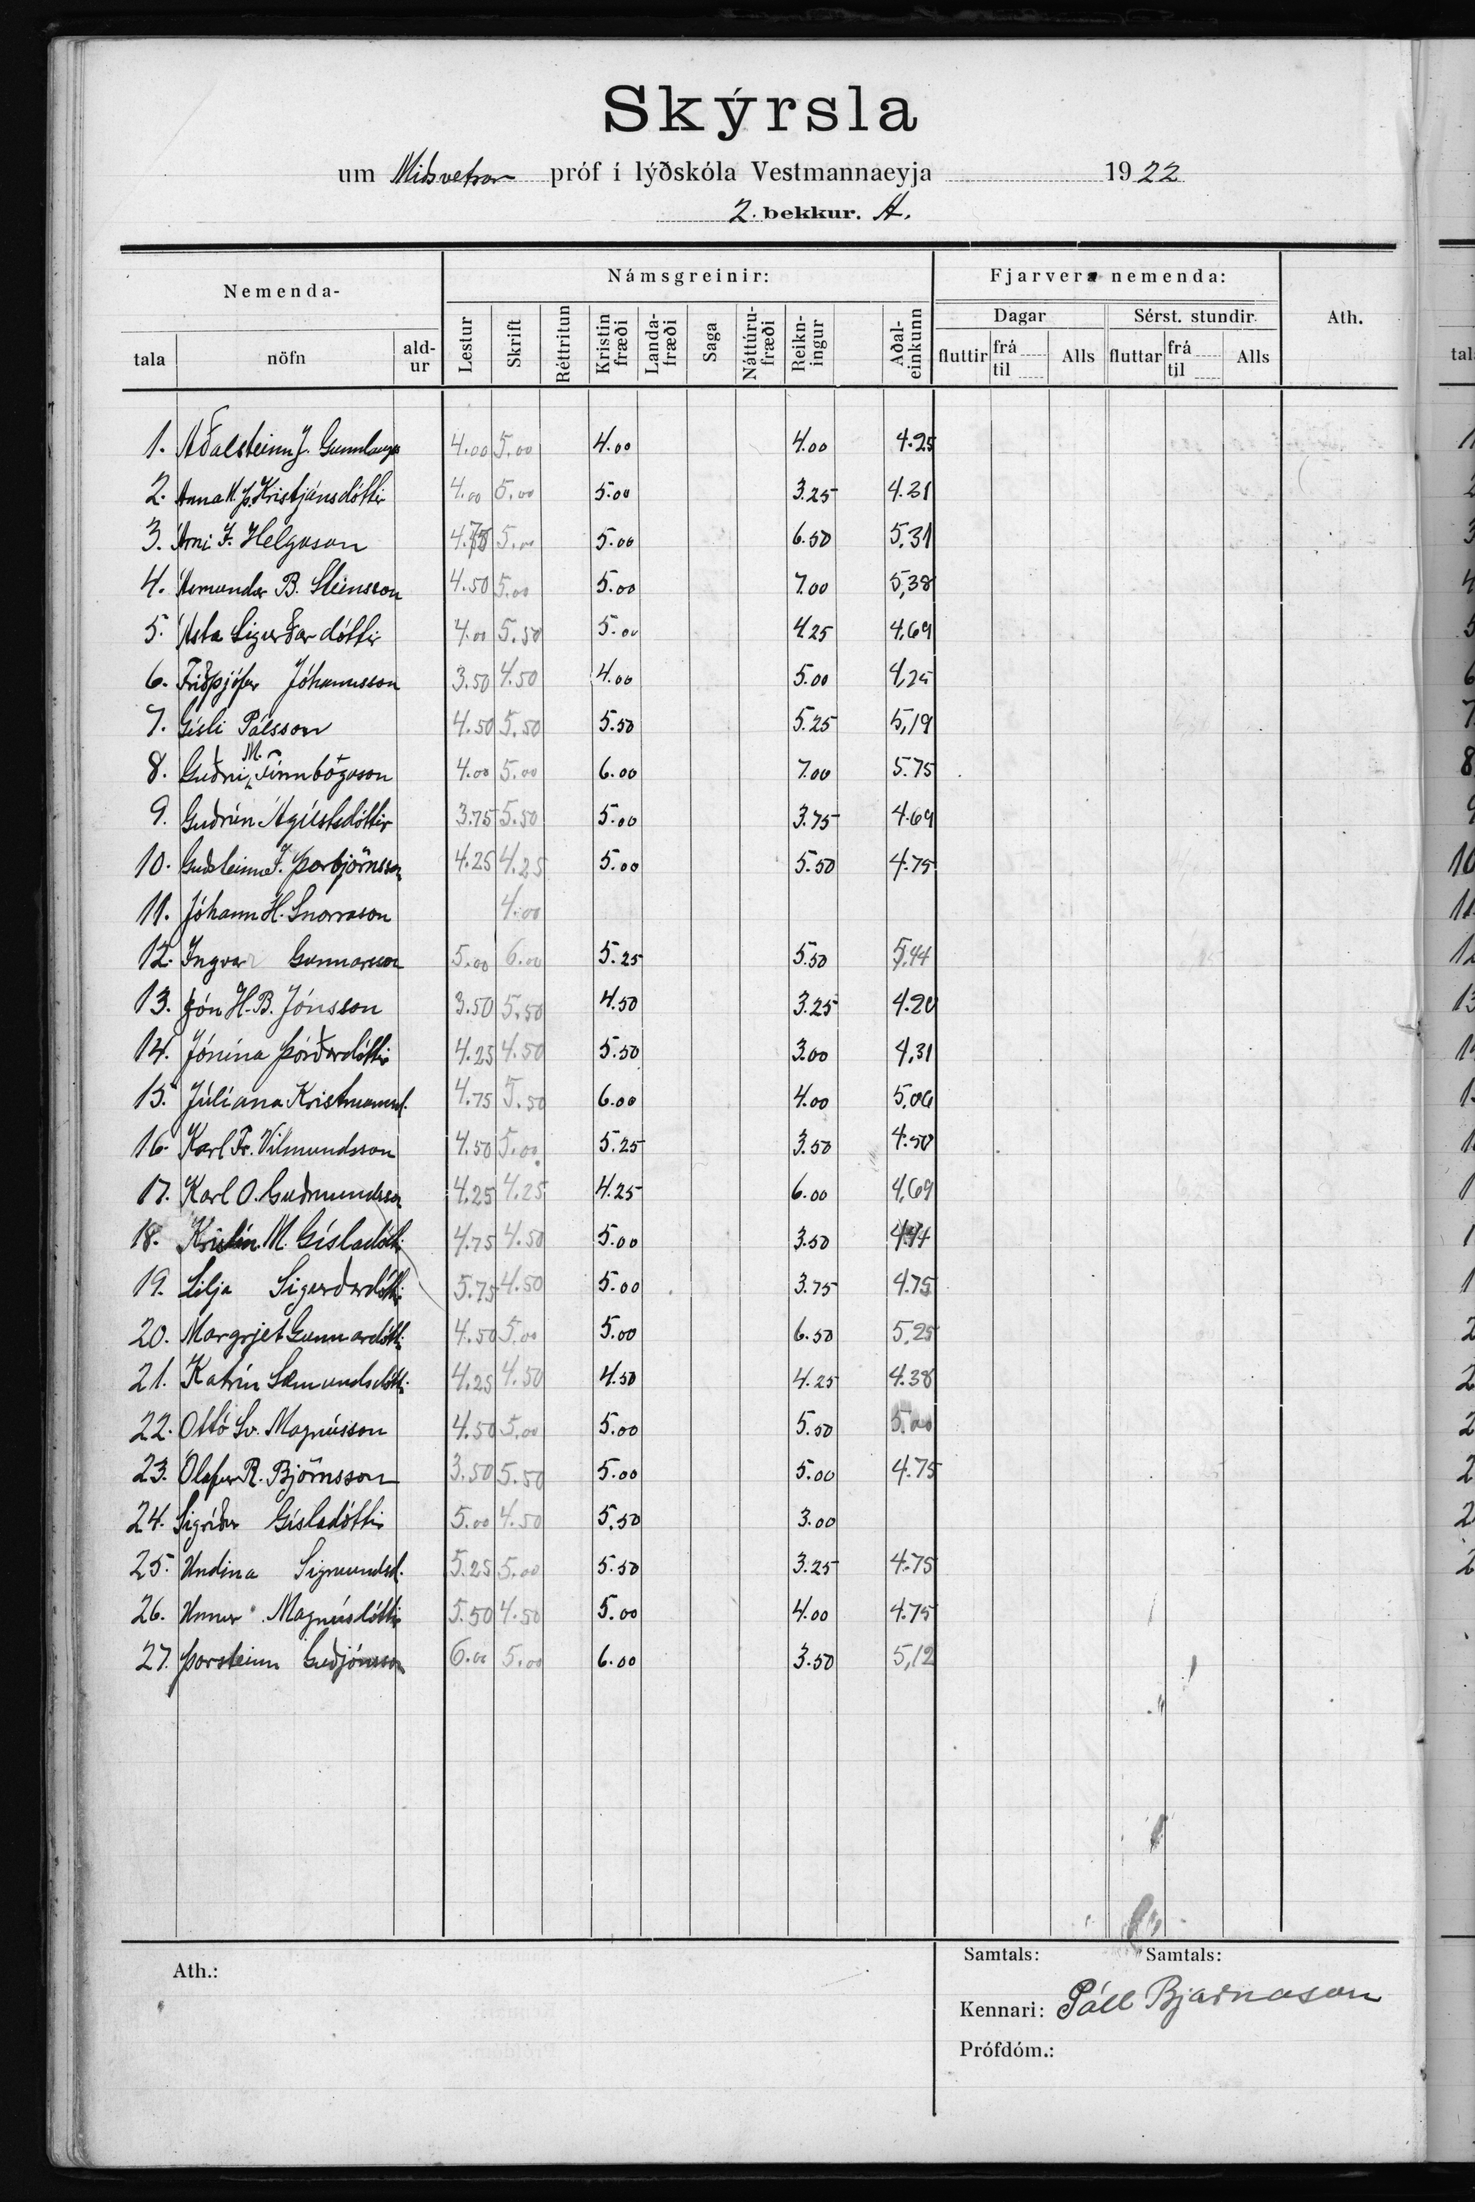 Skýrsla
um Miðsvetrar próf í lýðskóla Vestmannaeyja 1922
2. bekkur. A.
Nemenda- Námsgreinir: Fjarvera nemenda: Ath.
tala nöfn ald-ur Lestur Skrift Réttritun Kristin fræði Landa-fræði Saga Náttúru-fræði Reikn-ingur Aðal-einkunn Dagar Sérst. stundir
fluttir frá til Alls fluttar frá til Alls
1. Aðalsteinn J. Gunnlaugs 4.00 5.00 4.00 4.00 4.25
2. Anna M. Þ. Kristjánsdóttir 4.00 5.00 5.00 3.25 4.31
3. Árni J. Helgason 4.75 5.00 5.00 6.50 5,31
4. Ásmundur B. Steinsson 4.50 5.00 5.00 7.00 5,38
5. Ásta Sigurðardóttir 4.00 5.50 5.00 4.25 4,69
6. Friðþjófur Jóhannsson 3.50 4.50 4.00 5.00 4,25
7. Gísli Pálsson 4.50 5.50 5.50 5.25 5,19
8. Guðni M. Finnbógason 4.00 5.00 6.00 7.00 5.75
9. Guðrún Ágústsdóttir 3.75 5.50 5.00 3.75 4.69
10. Guðsteinn J. Þorbjörnsson 4.25 4.25 5.00 5.50 4.75
11. Jóhann H. Snorrason 4.00
12. Ingvar Gunnarsson 5.00 6.00 5.25 5.50 5,44
13. Jón H. B. Jónsson 3.50 5.50 4.50 3.25 4.20
14. Jónína Þórðardóttir 4.25 4.50 5.50 3.00 4,31
15. Júlíana Kristmannsd. 4.75 5.50 6.00 4.00 5,06
16. Karl Fr. Vilmundsson 4.50 5.00 5.25 3.50 4.50
17. Karl O. Guðmundsson 4.25 4.25 4.25 6.00 4,69
18. Kristín M. Gísladótti 4.75 4.50 5.00 3.50 4.44
19. Lilja Sigurðardótti 5.75 4.50 5.00 3.75 4.75
20. Margrjet Gunnardótti 4.50 5.00 5.00 6.50 5,25
21. Katrín Sæmundsdótti 4.25 4.50 4.50 4.25 4.38
22. Ottó Sv. Magnússon 4.50 5.00 5.00 5.50 5.00
23. Ólafur R. Björnsson 3.50 5.50 5.00 5.00 4.75
24. Sigríður Gísladóttir 5.00 4.50 5,50 3.00
25. Undína Sigmundsd. 5.25 5.00 5.50 3.25 4.75
26. Unnur Magnúsdóttir 5.50 4.50 5.00 4.00 4.75
27. Þorsteinn Guðjónsson 6.00 5.00 6.00 3.50 5,12
Ath.: Samtals: Samtals:
Kennari: Páll Bjarnason
Prófdóm.: